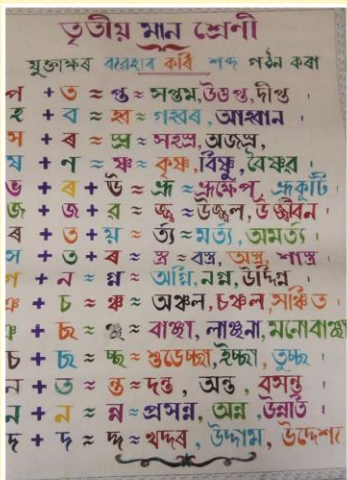 তৃতীয় মান শ্ৰেণী
যুক্তাক্ষৰ ব্যৱহাৰ কৰি শব্দ গঠন কৰা
প + ত ≈ প্ত ≈ সপ্তম, উত্তপ্ত, দীপ্ত ।
হ + ব ≈ হ্ব ≈ গহ্বৰ, আহ্বান ।
স + ৰ ≈ স্ৰ ≈ সহস্ৰ, অজস্ৰ,
ষ + ণ ≈ ষ্ণ ≈ কৃষ্ণ, বিষ্ণু, বৈষ্ণৱ ।
ভ + ৰ + ঊ ≈ ভ্ৰূ ≈ ভ্ৰূক্ষেপ, ভ্ৰূকূটি ।
জ + জ + ৱ ≈ জ্জ্ব ≈ উজ্জ্বল, উজ্জীৱন ।
ৰ + ত + য় ≈ ৰ্ত্য ≈ মৰ্ত্য, অমৰ্ত্য ।
স + ত + ৰ ≈ স্ত্ৰ ≈ বস্ত্ৰ, অস্ত্ৰ, শাস্ত্ৰ ।
গ + ন ≈ গ্ন ≈ অগ্নি, নগ্ন, উদ্বিগ্ন ।
ঞ + চ ≈ ঞ্চ ≈ অঞ্চল, চঞ্চল, সঞ্চিত ।
ঞ + ছ ≈ ঞ্ছ ≈ বাঞ্ছা, লাঞ্ছনা, মনোবাঞ্ছা
চ + ছ ≈ চ্ছ ≈ শুভেচ্ছা, ইচ্ছা, তুচ্ছ ।
ন + ত ≈ ন্ত ≈ দন্ত, অন্ত, বসন্ত ।
ন + ন ≈ ন্ন ≈ প্ৰসন্ন, অন্ন, উন্নতি ।
দ + দ ≈ দ্দ ≈ খদ্দৰ, উদ্দাম, উদ্দেশ্য